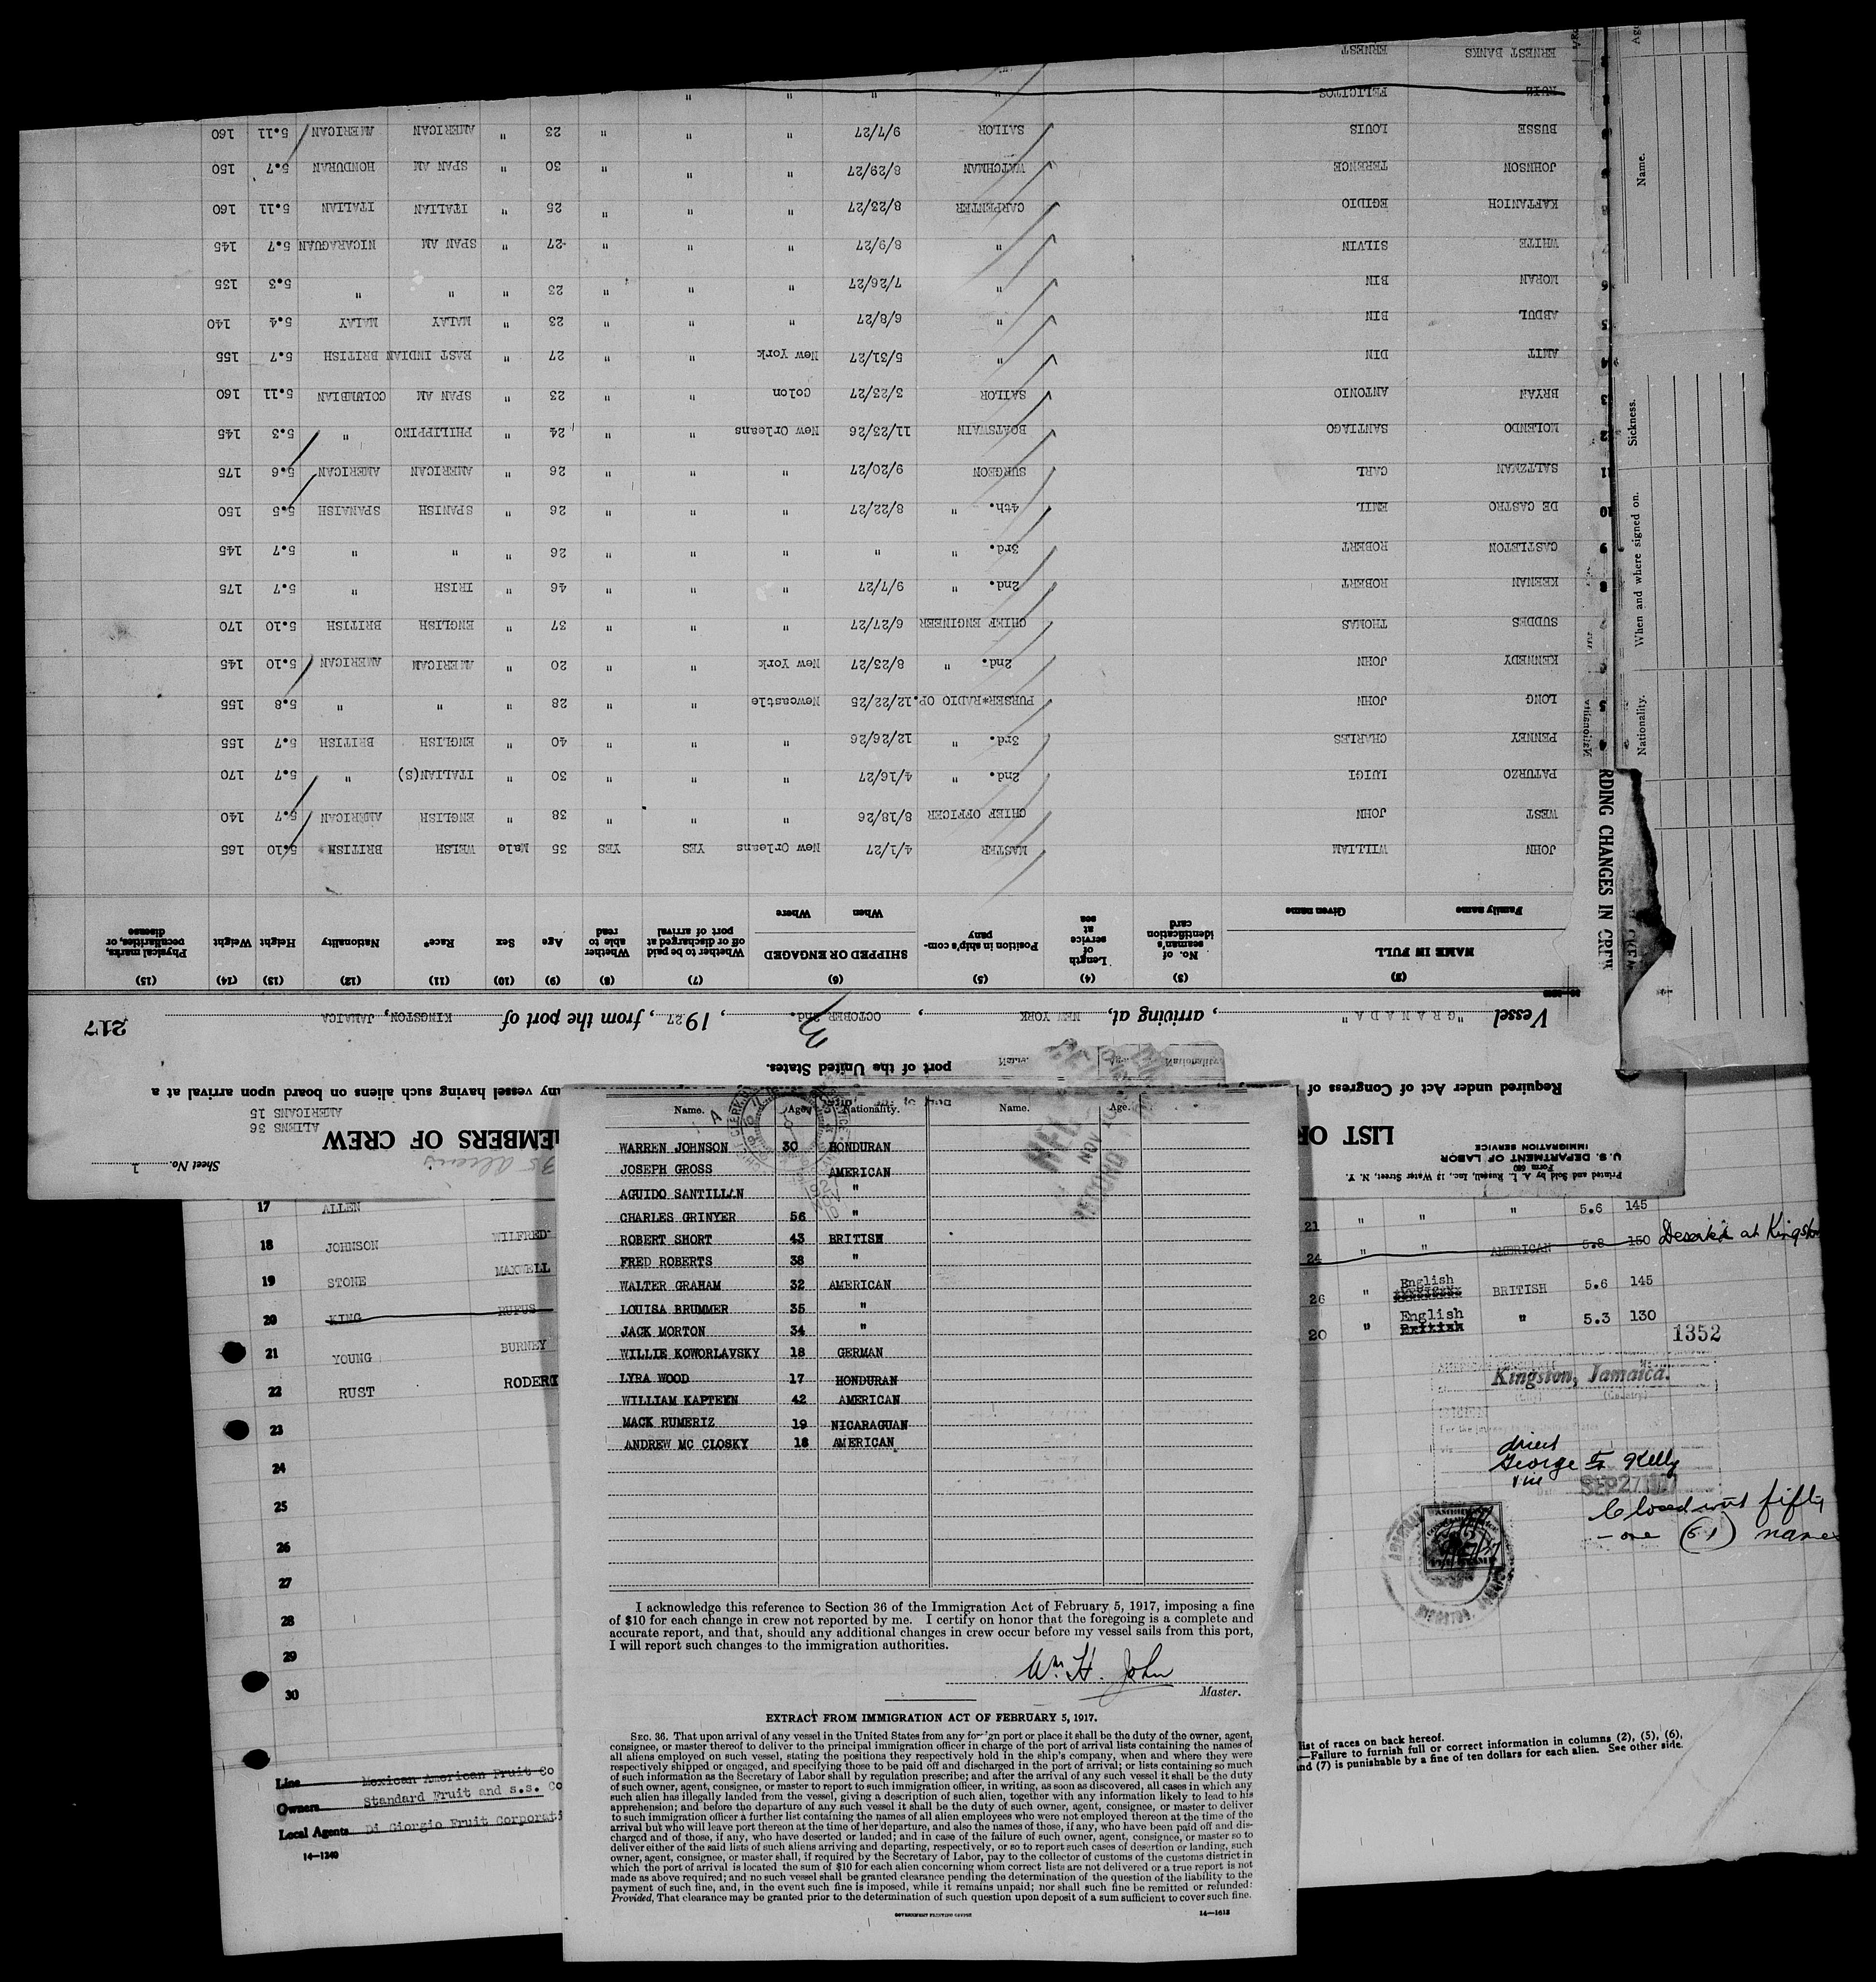 Printed and Sold by A. L. Russell, Inc., 13 Water Street, N. Y.
Form 680
U. S. DEPARTMENT OF LABOR
IMMIGRATION SERVICE
Sheet No. 1
LIST OF
EMBERS OF CREW
ALIENS 36
AMERICANS 15
Required under Act of Congress of
ny vessel having such aliens on board upon arrival at a
port of the United States.
Vessel "GRANADA", arriving at, NEW YORK, OCTOBER 2nd., 1927, from the port of KINGSTON, JAMAICA
217
(2) (3) (4) (5) (6) (7) (8) (9) (10) (11) (12) (13) (14) (15)
NAME IN FULL No. of seaman's identification card Length of service at sea Position in ship's company SHIPPED OR ENGAGED Whether to be paid off or discharged at port of arrival Whether able to read Age Sex Race* Nationality Height Weight Physical marks, peculiarities, or disease
Family name Given name When Where
JOHN WILLIAM MASTER 4/1/27 New Orleans YES YES 35 Male WELSH BRITISH 5.10 165
WEST JOHN CHIEF OFFICER 8/18/26 " " " 38 " ENGLISH AMERICAN 5.7 140
PATURZO LUIGI 2nd. " 4/16/27 " " " 30 " ITALIAN(S) " 5.7 170
4 PENNEY CHARLES 3rd. " 12/26/26 " " " 40 " ENGLISH BRITISH 5.7 155
5 LONG JOHN PURSER*RADIO OP. 12/22/25 Newcastle " " 28 " " " 5.8 155
6 KENNEDY JOHN 2nd. " 8/23/27 New York " " 20 " AMERICAN AMERICAN 5.10 145
7 SUDDES THOMAS CHIEF ENGINEER 6/27/27 " " " 37 " ENGLISH BRITISH 5.10 170
8 KEENAN ROBERT 2nd. " 9/7/27 " " " 46 " IRISH " 5.7 175
9 CASTLETON ROBERT 3rd. " " " " " 26 " " " 5.7 145
10 DE CASTRO EMIL 4th. " 8/22/27 " " " 26 " SPANISH SPANAISH 5.5 150
11 SALTZMAN CARL SURGEON 9/20/27 " " " 26 " AMERICAN AMERICAN 5.6 175
12 MOLENDO SANTIAGO BOATSWAIN 11/23/26 New Orleans " " 24 " PHILIPPINO " 5.3 145
13 BRYAN ANTONIO SAILOR 3/23/27 Colon " " 23 " SPAN AM COLUMBIAN 5.11 160
14 AMIT DIN " 5/31/27 New York " " 27 " EAST INDIAN BRITISH 5.7 155
15 ABDUL BIN " 6/8/27 " " " 23 " MALAY MALAY 5.4 140
16 MORAN BIN " 7/26/27 " " " 23 " " " 5.3 135
WHITE SILVIN " 8/9/27 " " " 27 " SPAN AM NICARAGUAN 5.7 145
KAFTANICH EGIDIO CARPENTER 8/23/27 " " " 25 " ITALIAN ITALIAN 5.11 160
JOHNSON TERENCE WATCHMAN 8/29/27 " " " 30 " SPAN AM HONDURAN 5.7 150
BUSSE LOUIS SAILOR 9/7/27 " " " 23 " AMERICAN AMERICAN 5.11 160
RUIZ FELICITOS " " " "
ERNEST BANKS ERNEST
Name.
Sickness.
When and where signed on.
Nationality.
RDING CHANGES IN CREW
Name. Age. Nationality. Name. Age.
WARREN JOHNSON 30 HONDURAN
JOSEPH GROSS AMERICAN
AGUIDO SANTILLAN "
CHARLES GRINYER 56 "
ROBERT SHORT 43 BRITISH
FRED ROBERTS 38 "
WALTER GRAHAM 32 AMERICAN
LOUISA BRUMMER 35 "
JACK MORTON 34 "
WILLIE KOWORLAVSKY 18 GERMAN
LYRA WOOD 17 HONDURAN
WILLIAM KAPTEEN 42 AMERICAN
MACK RUMERIZ 19 NICARAGUAN
ANDREW MC CLOSKY 18 AMERICAN
I acknowledge this reference to Section 36 of the Immigration Act of February 5, 1917, imposing a fine
of $10 for each change in crew not reported by me. I certify on honor that the foregoing is a complete and
accurate report, and that, should any additional changes in crew occur before my vessel sails from this port,
I will report such changes to the immigration authorities.
Wm H. John
Master.
EXTRACT FROM IMMIGRATION ACT OF FEBRUARY 5, 1917.
SEC. 36. That upon arrival of any vessel in the United States from any foreign port or place it shall be the duty of the owner, agent,
consignee, or master thereof to deliver to the principal immigration officer in charge of the port of arrival lists containing the names of
all aliens employed on such vessel, stating the positions they respectively hold in the ship's company, when and where they were
respectively shipped or engaged, and specifying those to be paid off and discharged in the port of arrival; or lists containing so much
of such information as the Secretary of Labor shall by regulation prescribe; and after the arrival of any such vessel it shall be the duty
of such owner, agent, consignee, or master to report to such immigration officer, in writing, as soon as discovered, all cases in which any
such alien has illegally landed from the vessel, giving a description of such alien, together with any information likely to lead to his
apprehension; and before the departure of any such vessel it shall be the duty of such owner, agent, consignee, or master to deliver
to such immigration officer a further list containing the names of all alien employees who were not employed thereon at the time of the
arrival but who will leave port thereon at the time of her departure, and also the names of those, if any, who have been paid off and dis-
charged and of those, if any, who have deserted or landed; and in case of the failure of such owner, agent, consignee, or master so to
deliver either of the said lists of such aliens arriving and departing, respectively, or so to report such cases of desertion or landing, such
owner, agent, consignee, or master shall, if required by the Secretary of Labor, pay to the collector of customs of the customs district in
which the port of arrival is located the sum of $10 for each alien concerning whom correct lists are not delivered or a true report is not
made as above required; and no such vessel shall be granted clearance pending the determination of the question of the liability to the
payment of such fine, and, in the event such fine is imposed, while it remains unpaid; nor shall such fine be remitted or refunded:
Provided, That clearance may be granted prior to the determination of such question upon deposit of a sum sufficient to cover such fine.
GOVERNMENT PRINTING OFFICE
14—1613
17 ALLEN 21 " " " 5.6 145
18 JOHNSON WILFRED 24 " " AMERICAN 5.8 150 Deserted at Kingston
19 STONE MAXWELL 26 " English BRITISH 5.6 145
20 KING RUFUS 20 " English British " 5.3 130
21 YOUNG BURNEY
22 RUST ROBERT
23
24
25
26
27
28
29
30
1352
Kingston, Jamaica.
(Country)
George Kelly
SEP 27 1927
Closed with fifty
-one (51) names
Line Mexican American Fruit Co
Owners Standard Fruit and s.s. Co
Local Agents Di Giorgio Fruit Corporati
14—1240
list of races on back hereof.
—Failure to furnish full or correct information in columns (2), (5), (6),
nd (7) is punishable by a fine of ten dollars for each alien. See other side.